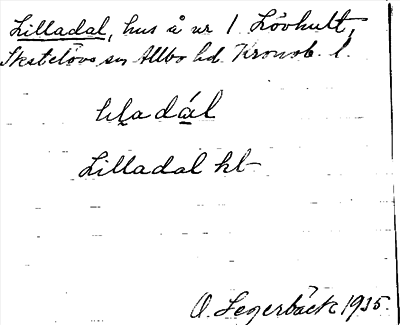 Lilladal, hus å nr 1 Lövhult,
Skatelövs sn Allbo hd. Kronob. l.
lıladál
Lilladal kt
O. Segerbäck 1935.